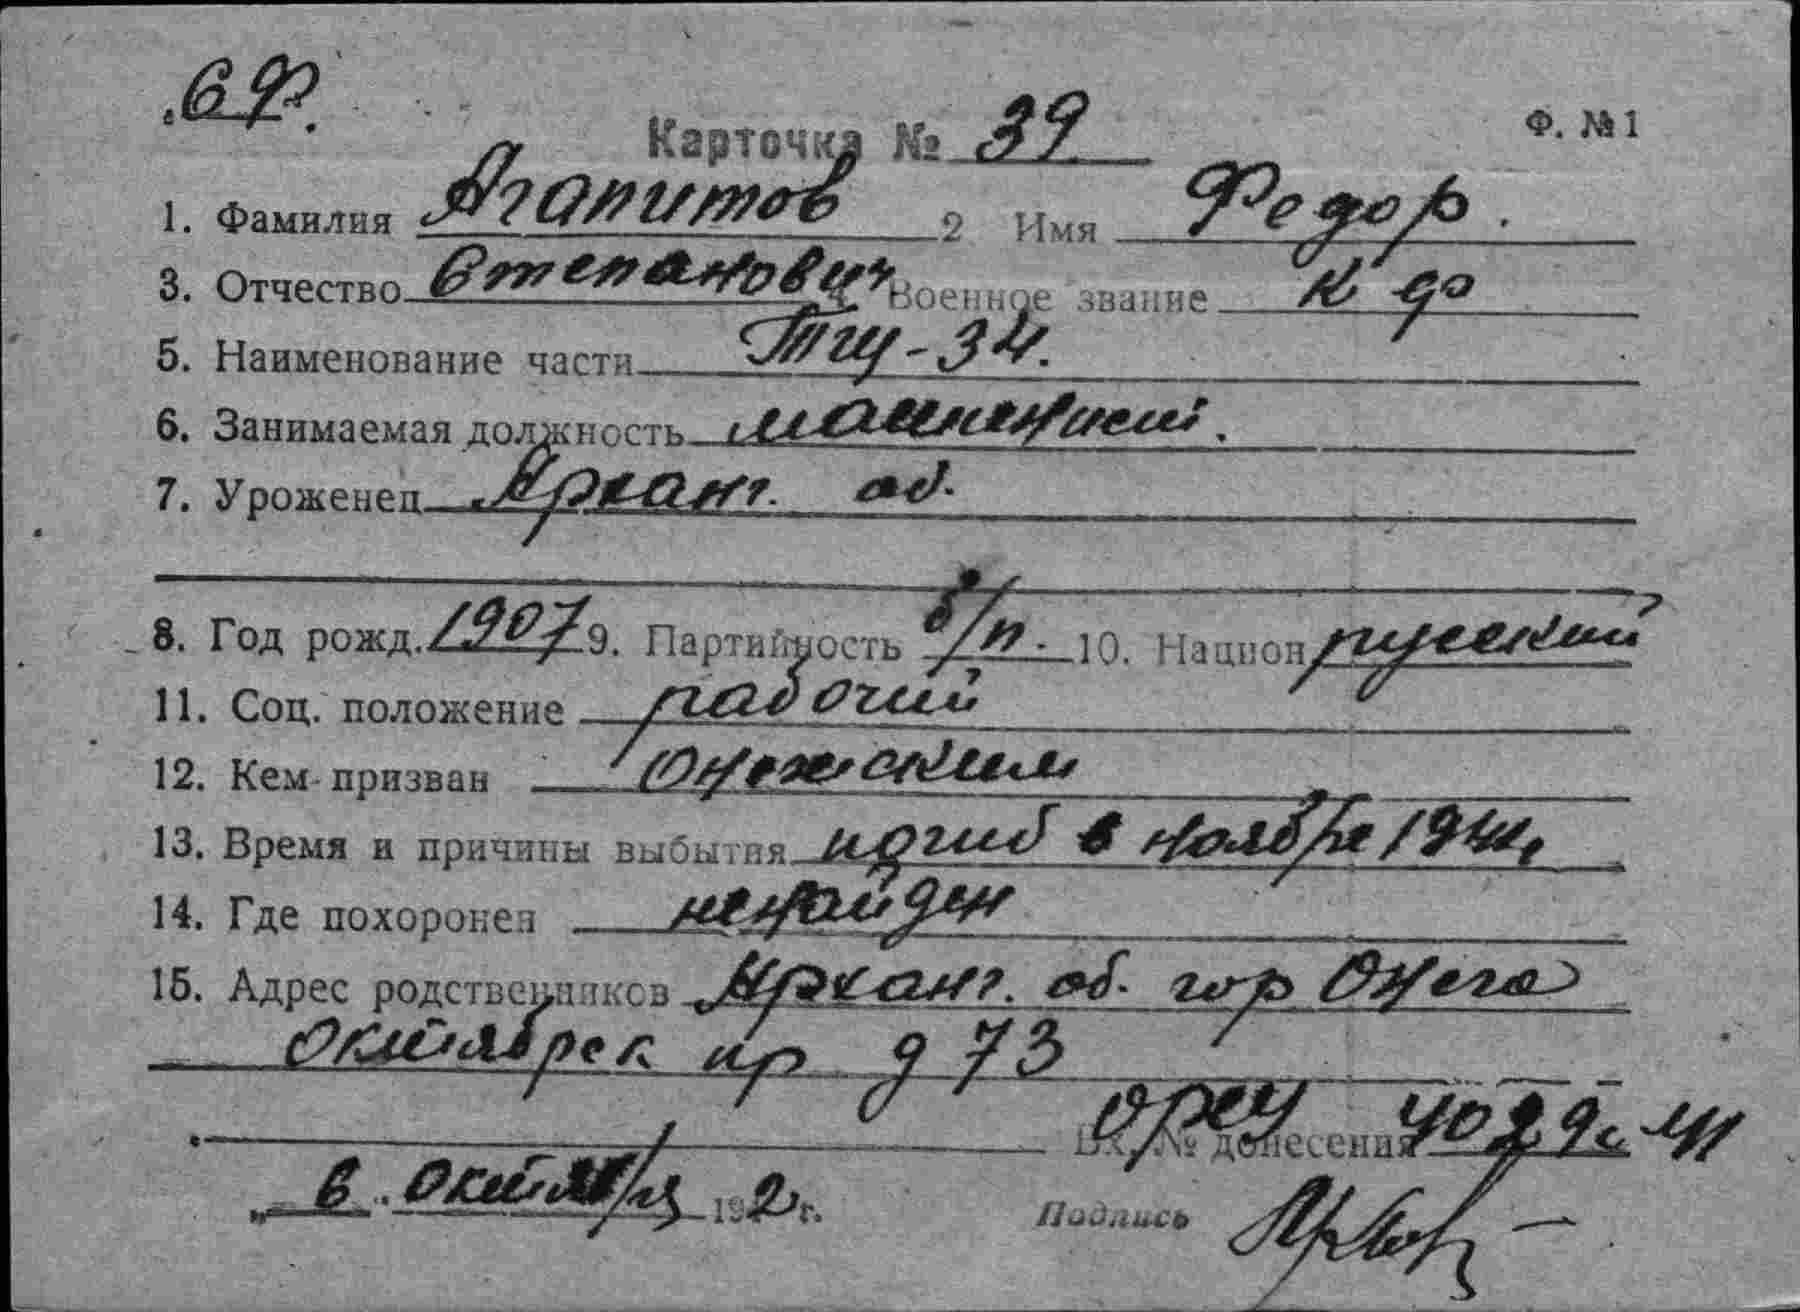 Карточка № 39
Ф. № 1
1. Фамилия Агапитов 2 Имя Федор.
3. Отчество Степанович 4. Военное звание к ф
5. Наименование части Тщ-34.
6. Занимаемая должность машинист.
7. Уроженец Арханг. об.
8. Год рожд. 1907 9. Партийность б/п. 10. Национ русский
11. Соц. положение рабочий
12. Кем призван Онежским
13. Время и причины выбытия погиб в ноябре 1941
14. Где похоронен ненайден
15. Адрес родственников Арханг. об. гор Онега
Октябрск пр д 73
Вх. № донесения
6 октября 19 2 г. Подпись